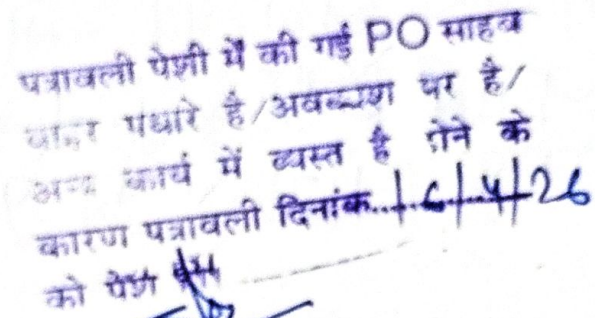 पत्रावली पेशी में की गई PO साहब
बाहर पधारे है/अवकाश पर है/
अन्य कार्य में व्यस्त है होने के
कारण पत्रावली दिनांक...16/4/26
को पेश